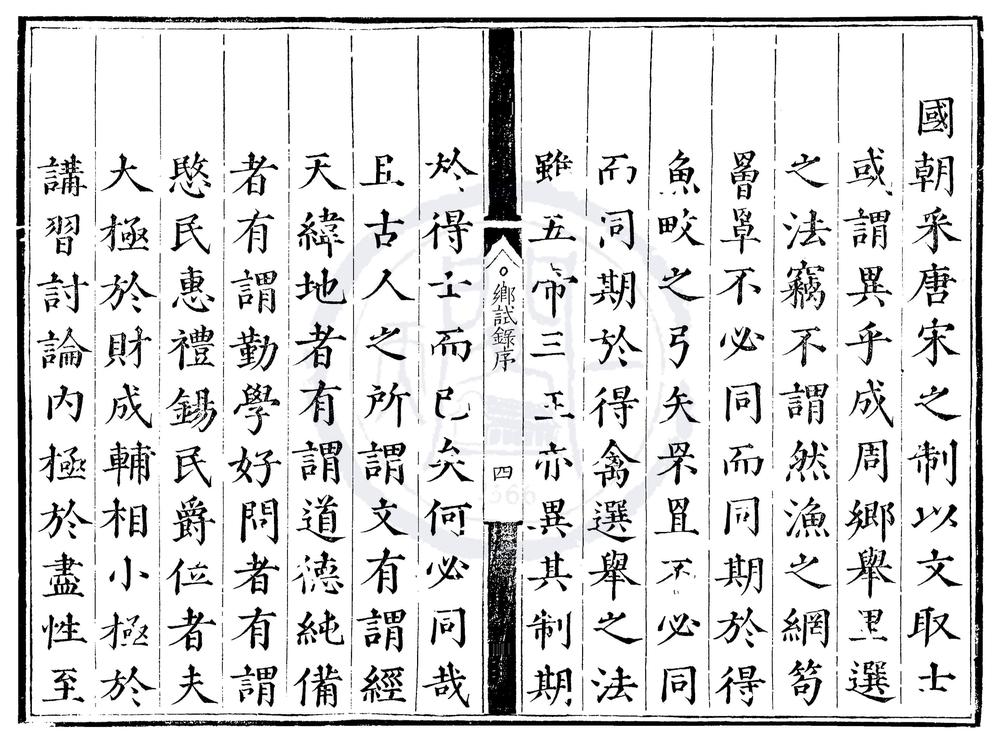 國朝采唐宋之制以文取士
或謂異乎成周鄉舉里選
之法竊不謂然漁之網笱
罾罩不必同而同期於得
魚畋之弓矢罘罝不必同
而同期於得禽選舉之法
雖五帝三王亦異其制期
鄉試錄序
四
於得士而已矣何必同哉
且古人之所謂文有謂經
天緯地者有謂道德純備
者有謂勤學好問者有謂
愍民惠禮錫民爵位者夫
大極於財成輔相小極於
講習討論內極於盡性至